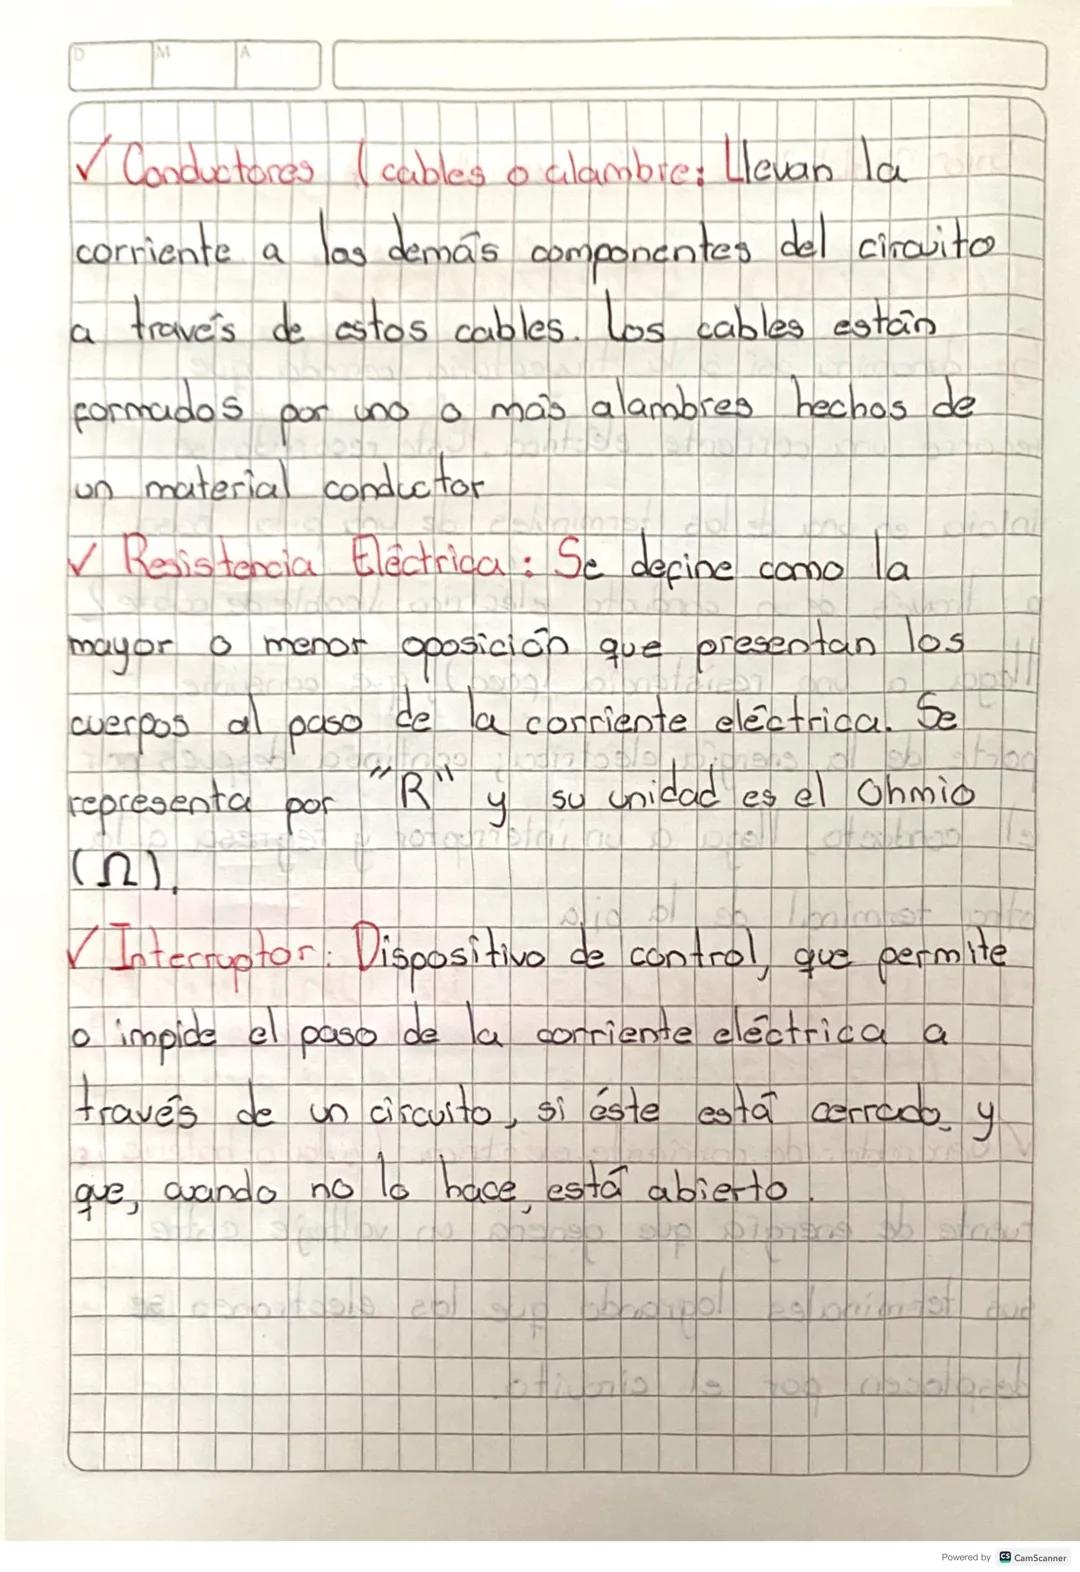 D M A
✓ Conductores (cables o alambre: Llevan la
corriente a las demás componentes del circuito
a través de estos cables. Los cables están
formados por uno o más alambres hechos de
un material conductor
✓ Resistencia Eléctrica: Se define como la
mayor o menor oposición que presentan los
cuerpos al paso de la corriente eléctrica. Se
representa por "R" y su unidad es el Ohmio
(Ω).
✓ Interruptor: Dispositivo de control, que permite
o impide el paso de la corriente eléctrica a
través de un circuito, si éste está cerrado y
que, cuando no lo hace, está abierto.
Powered by CS CamScanner